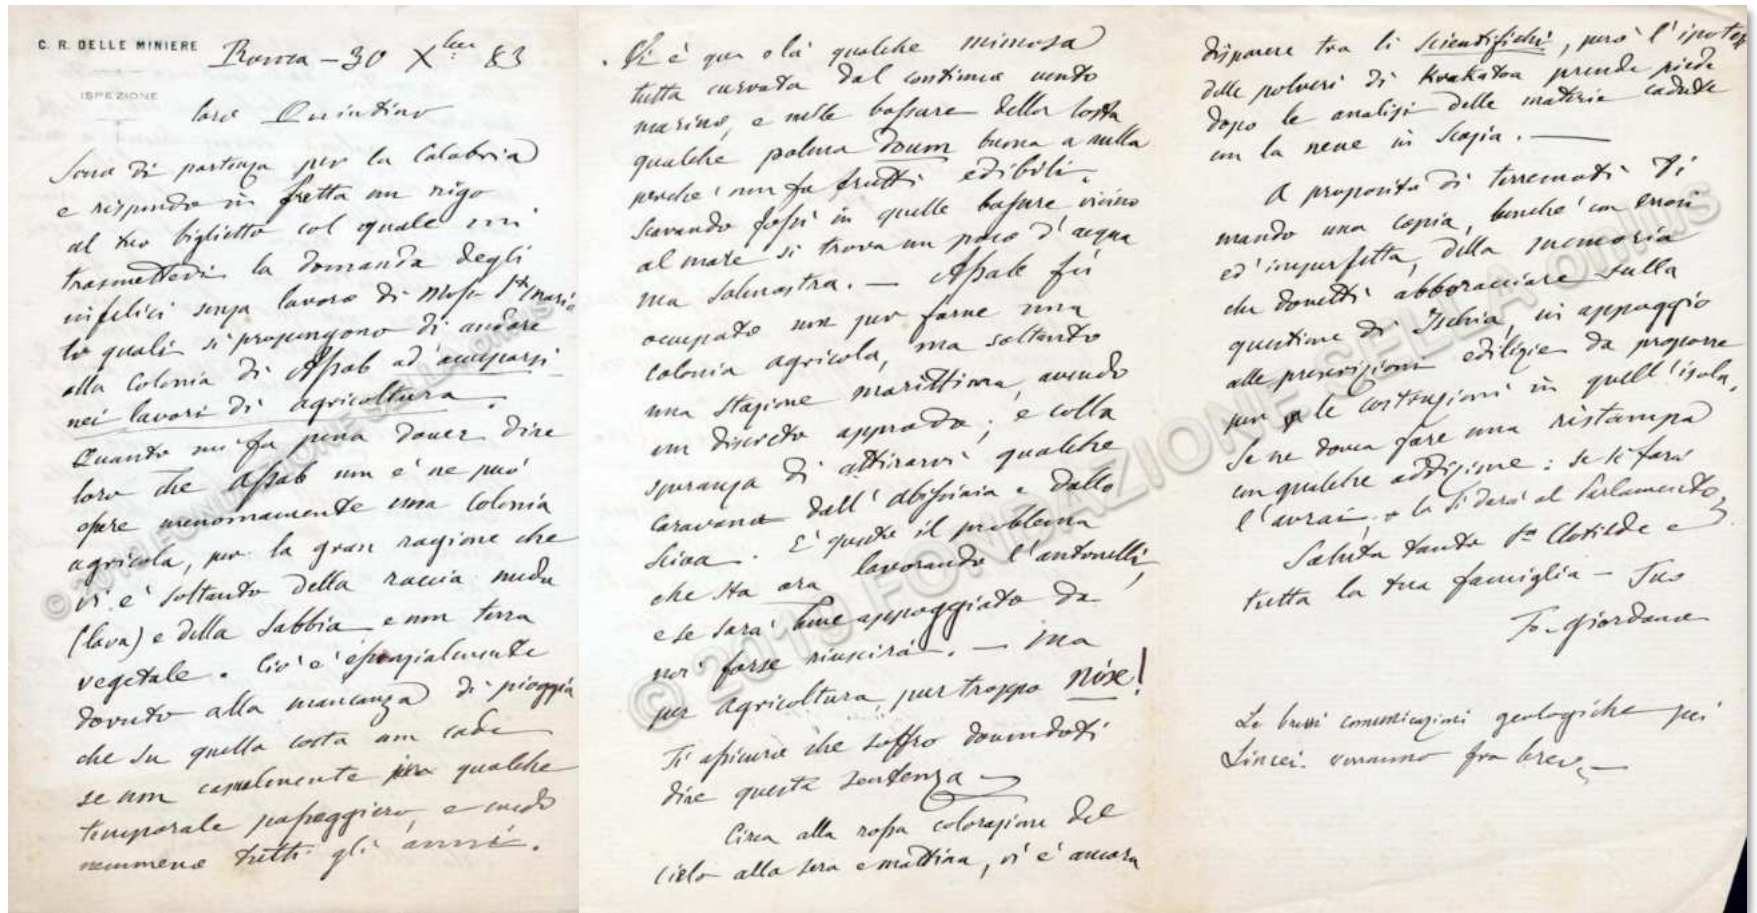 C. R. DELLE MINIERE
ISPEZIONE
Roma - 30 Xbre 83
Caro Quintino
Sono di partenza per la Calabria
e rispondo in fretta un rigo
al tuo biglietto col quale mi
trasmettevi la domanda degli
infelici senza lavoro di Mosso Sta Maria
li quali si propongono di andare
alla Colonia di Assab ad occuparsi
nei lavori di agricoltura.
Quanto mi fa pena dover dire
loro che Assab non è ne può
essere menomamente una Colonia
agricola, per la gran ragione che
vi è soltanto della roccia nuda
(lava) e della sabbia e non terra
vegetale. Ciò è essenzialmente
dovuto alla mancanza di pioggia
che su quella costa non cade
se non casualmente per qualche
temporale passeggiero, e credo
nemmeno tutti gli anni.
Vi è qua e là qualche mimosa
tutta curvata dal continuo vento
marino, e nelle bassure della costa
qualche palma doum buona a nulla
perché non fa frutti edibili.
Scavando fossi in quelle bassure vicino
al mare si trova un poco d'acqua
ma salmastra. — Assab fu
occupato non per farne una
colonia agricola, ma soltanto
una stazione marittima, avendo
un discreto approdo; e colla
speranza di attirarvi qualche
caravana dall'Abissinia e dallo
Scioa. È questo il problema
che sta ora lavorando l'Antonelli,
e se sarà bene appoggiato da
noi forse riuscirà. — Ma
per agricoltura, pur troppo nix!
Ti assicuro che soffro dovendoti
dire questa sentenza
Circa alla rossa colorazione del
cielo alla sera e mattina, vi è ancora
disparere tra li scientifichi, però l'ipotesi
delle polveri di Krakatoa prende piede
dopo le analisi delle materie cadute
con la neve in Scozia. —
A proposito di terremoti Ti
mando una copia, benché con errori
ed imperfetta, della memoria
che dovetti abborracciare sulla
questione di Ischia, in appoggio
alle prescrizioni edilizie da proporre
per le costruzioni in quell'isola.
Se ne dovea fare una ristampa
con qualche addizione: se si farà
l'avrai, e la si darà al Parlamento.
Saluta tanto Sa Clotilde e
tutta la tua famiglia — Tuo
Fe. Giordano
Le brevi comunicazioni geologiche pei
Lincei verranno fra breve. —
© 2019 FONDAZIONE SELLA ONLUS